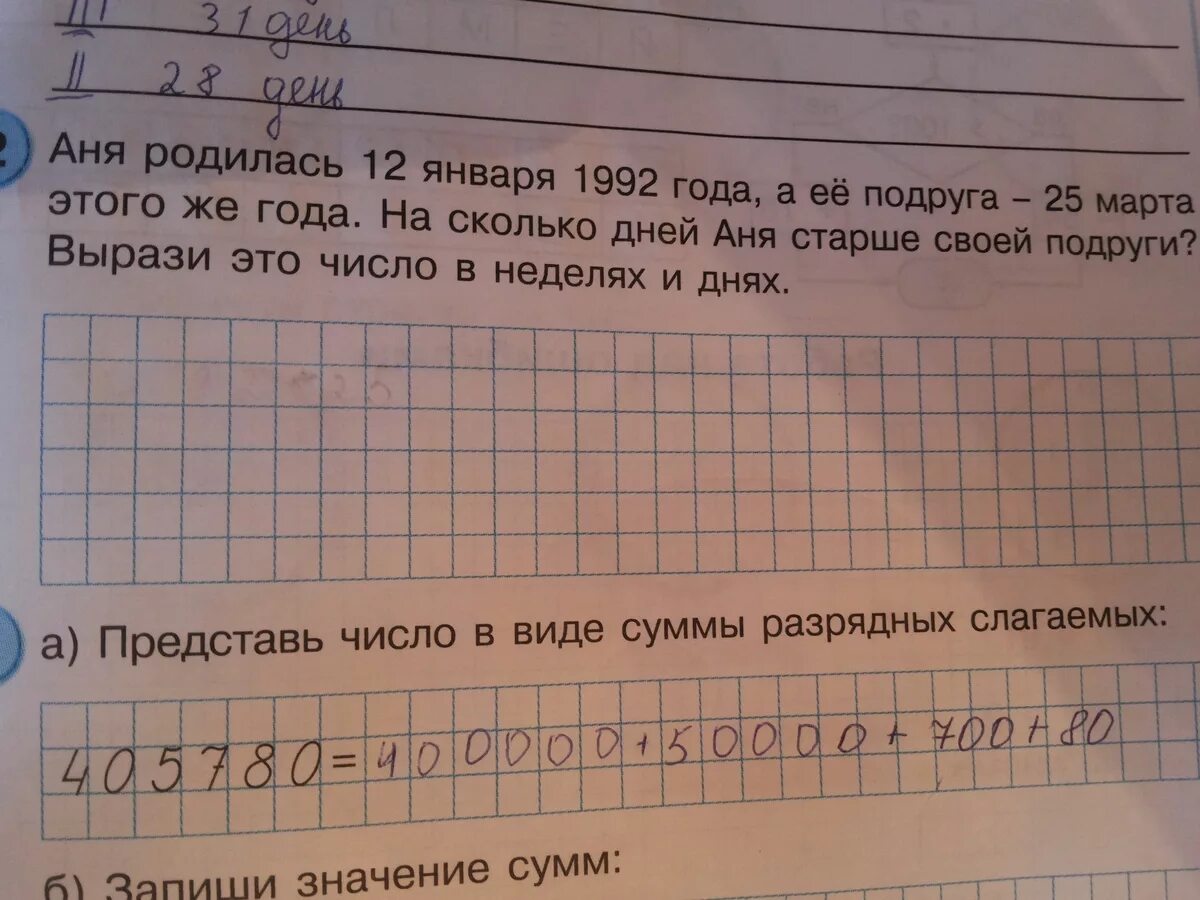 III 31 день
II 28 день
2
Аня родилась 12 января 1992 года, а её подруга – 25 марта
этого же года. На сколько дней Аня старше своей подруги?
Вырази это число в неделях и днях.
а) Представь число в виде суммы разрядных слагаемых:
405780=400000+50000+700+80
б) Запиши значение сумм: